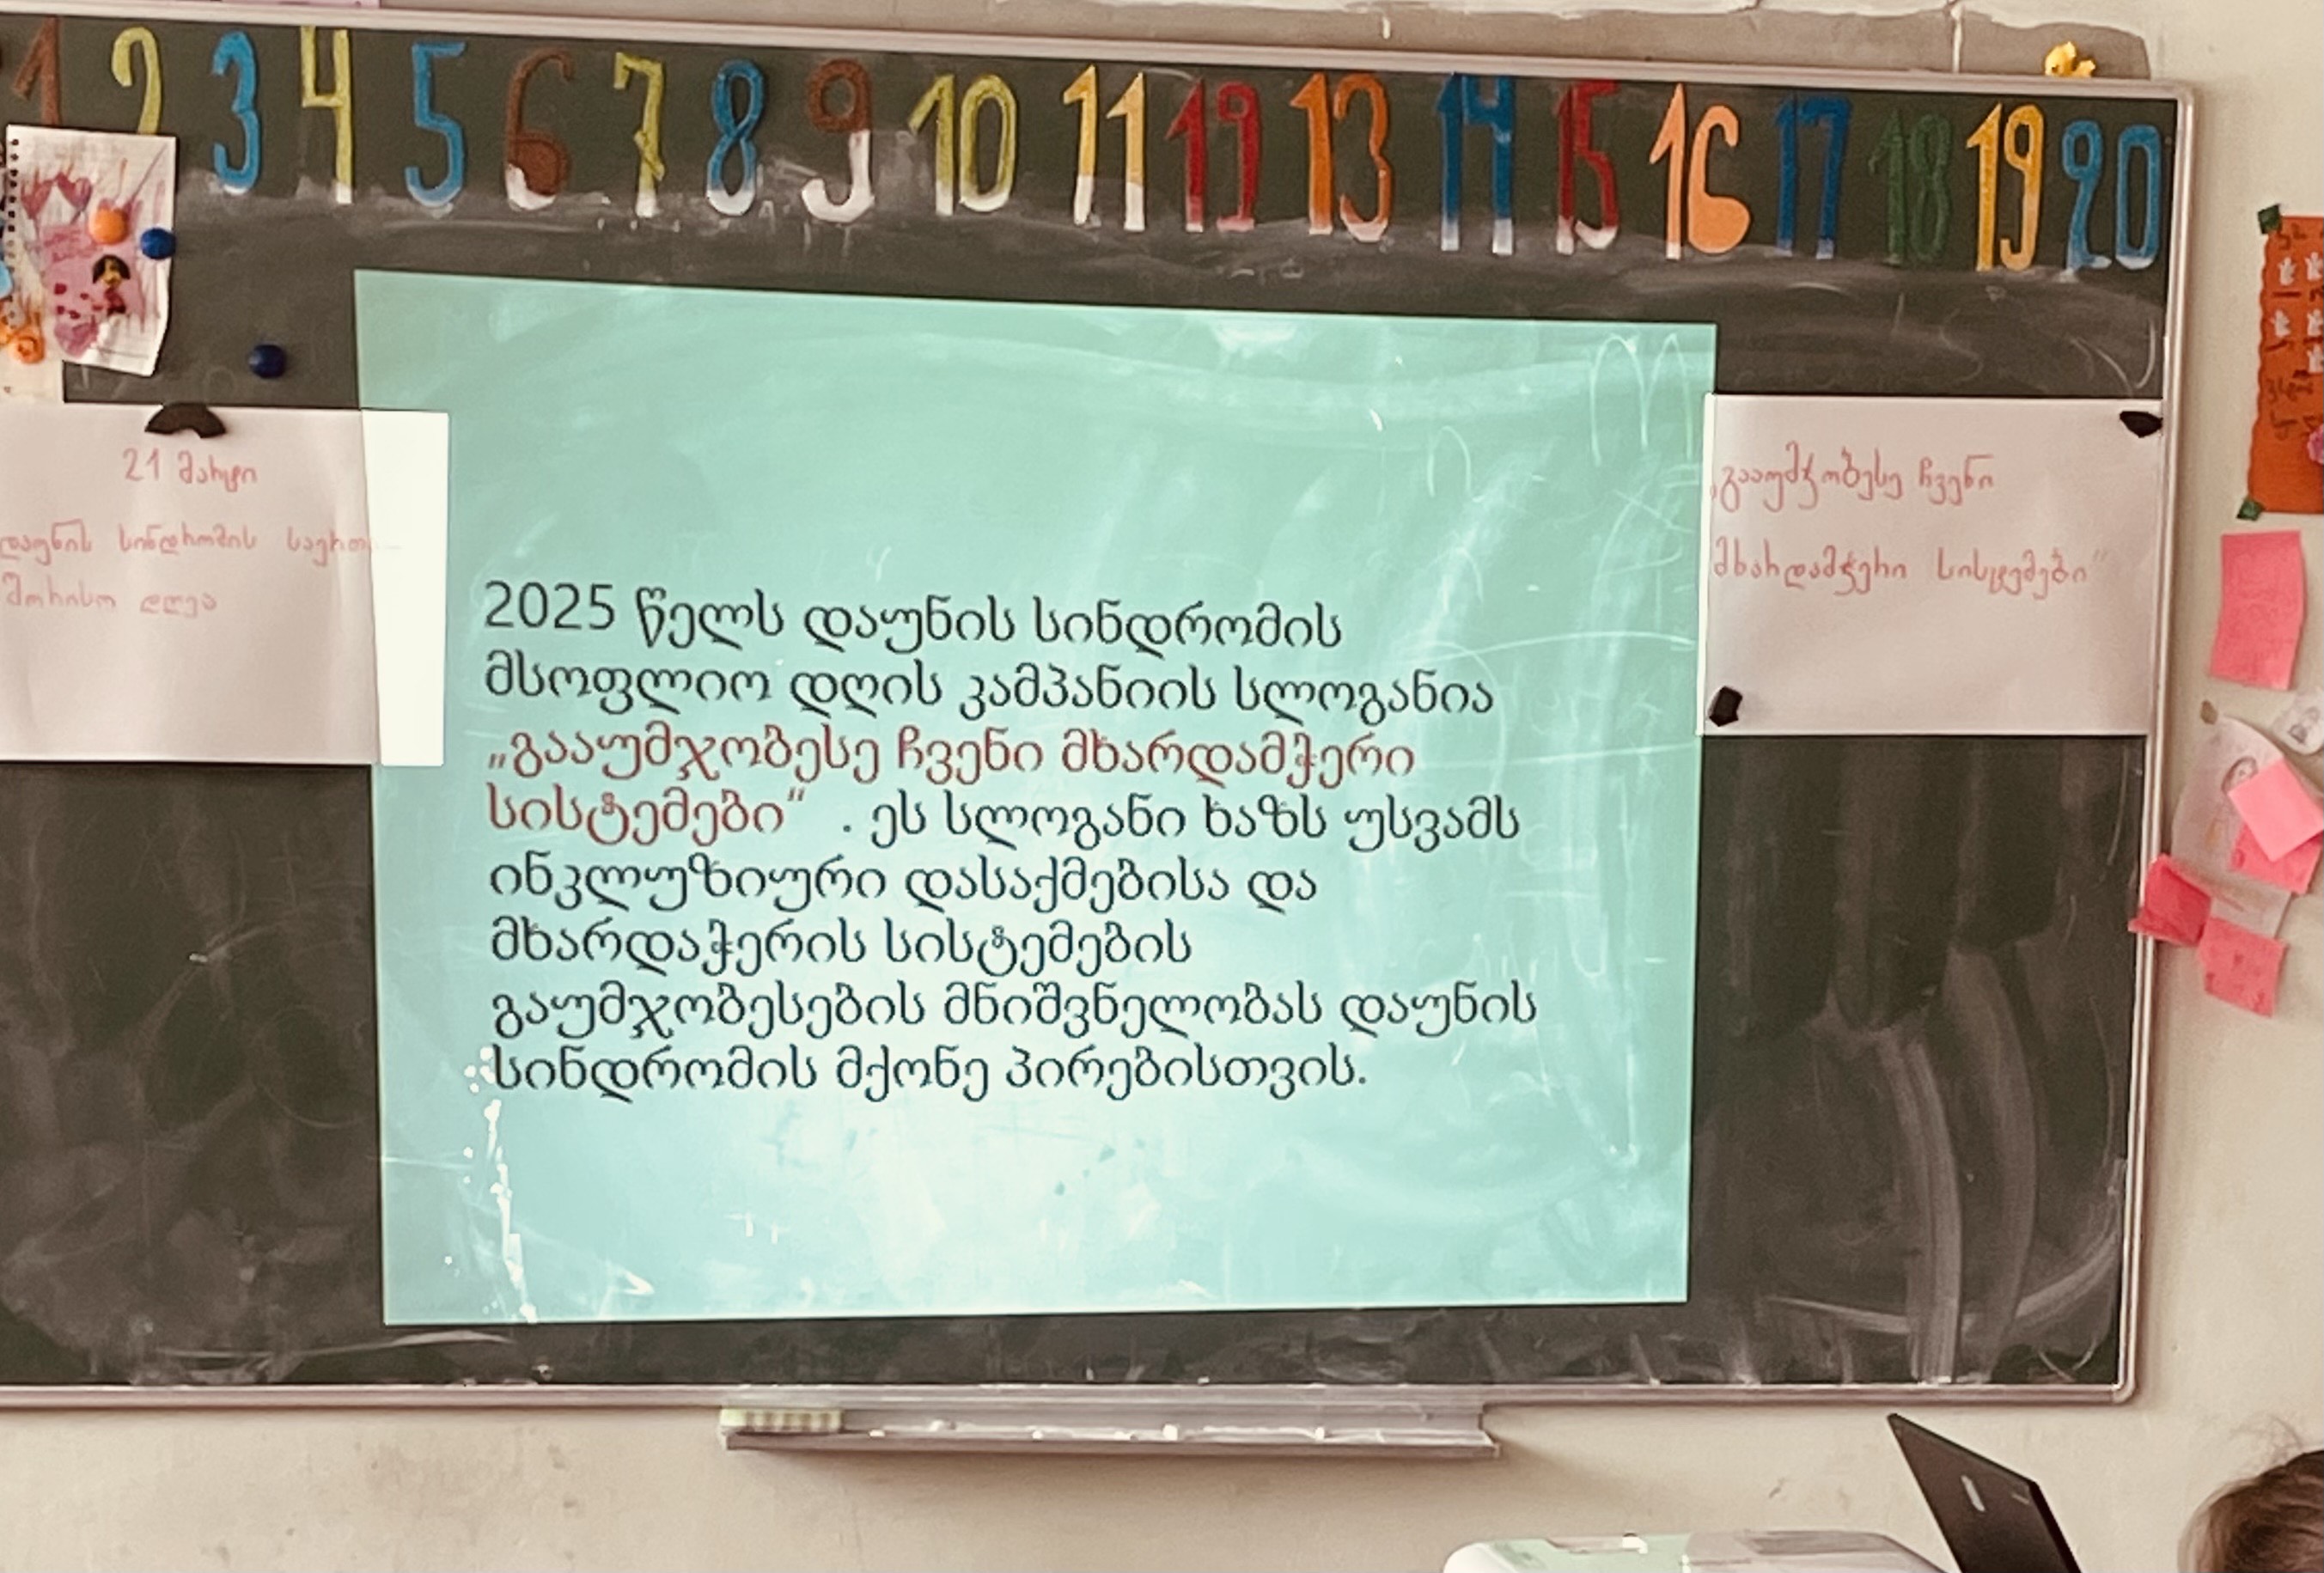 1 2 3 4 5 6 7 8 9 10 11 12 13 14 15 16 17 18 19 20
21 მარტი
დაუნის სინდრომის საერთა
შორისო დღეა
2025 წელს დაუნის სინდრომის
მსოფლიო დღის კამპანიის სლოგანია
„გააუმჯობესე ჩვენი მხარდამჭერი
სისტემები“ . ეს სლოგანი ხაზს უსვამს
ინკლუზიური დასაქმებისა და
მხარდაჭერის სისტემების
გაუმჯობესების მნიშვნელობას დაუნის
სინდრომის მქონე პირებისთვის.
„გააუმჯობესე ჩვენი
მხარდამჭერი სისტემები“